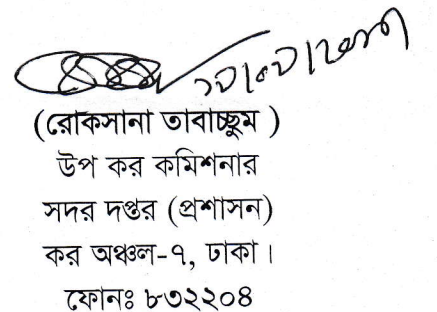 (রোকসানা তাবাচ্ছুম )
উপ কর কমিশনার
সদর দপ্তর (প্রশাসন)
কর অঞ্চল-৭, ঢাকা।
ফোনঃ ৮৩২২০৪